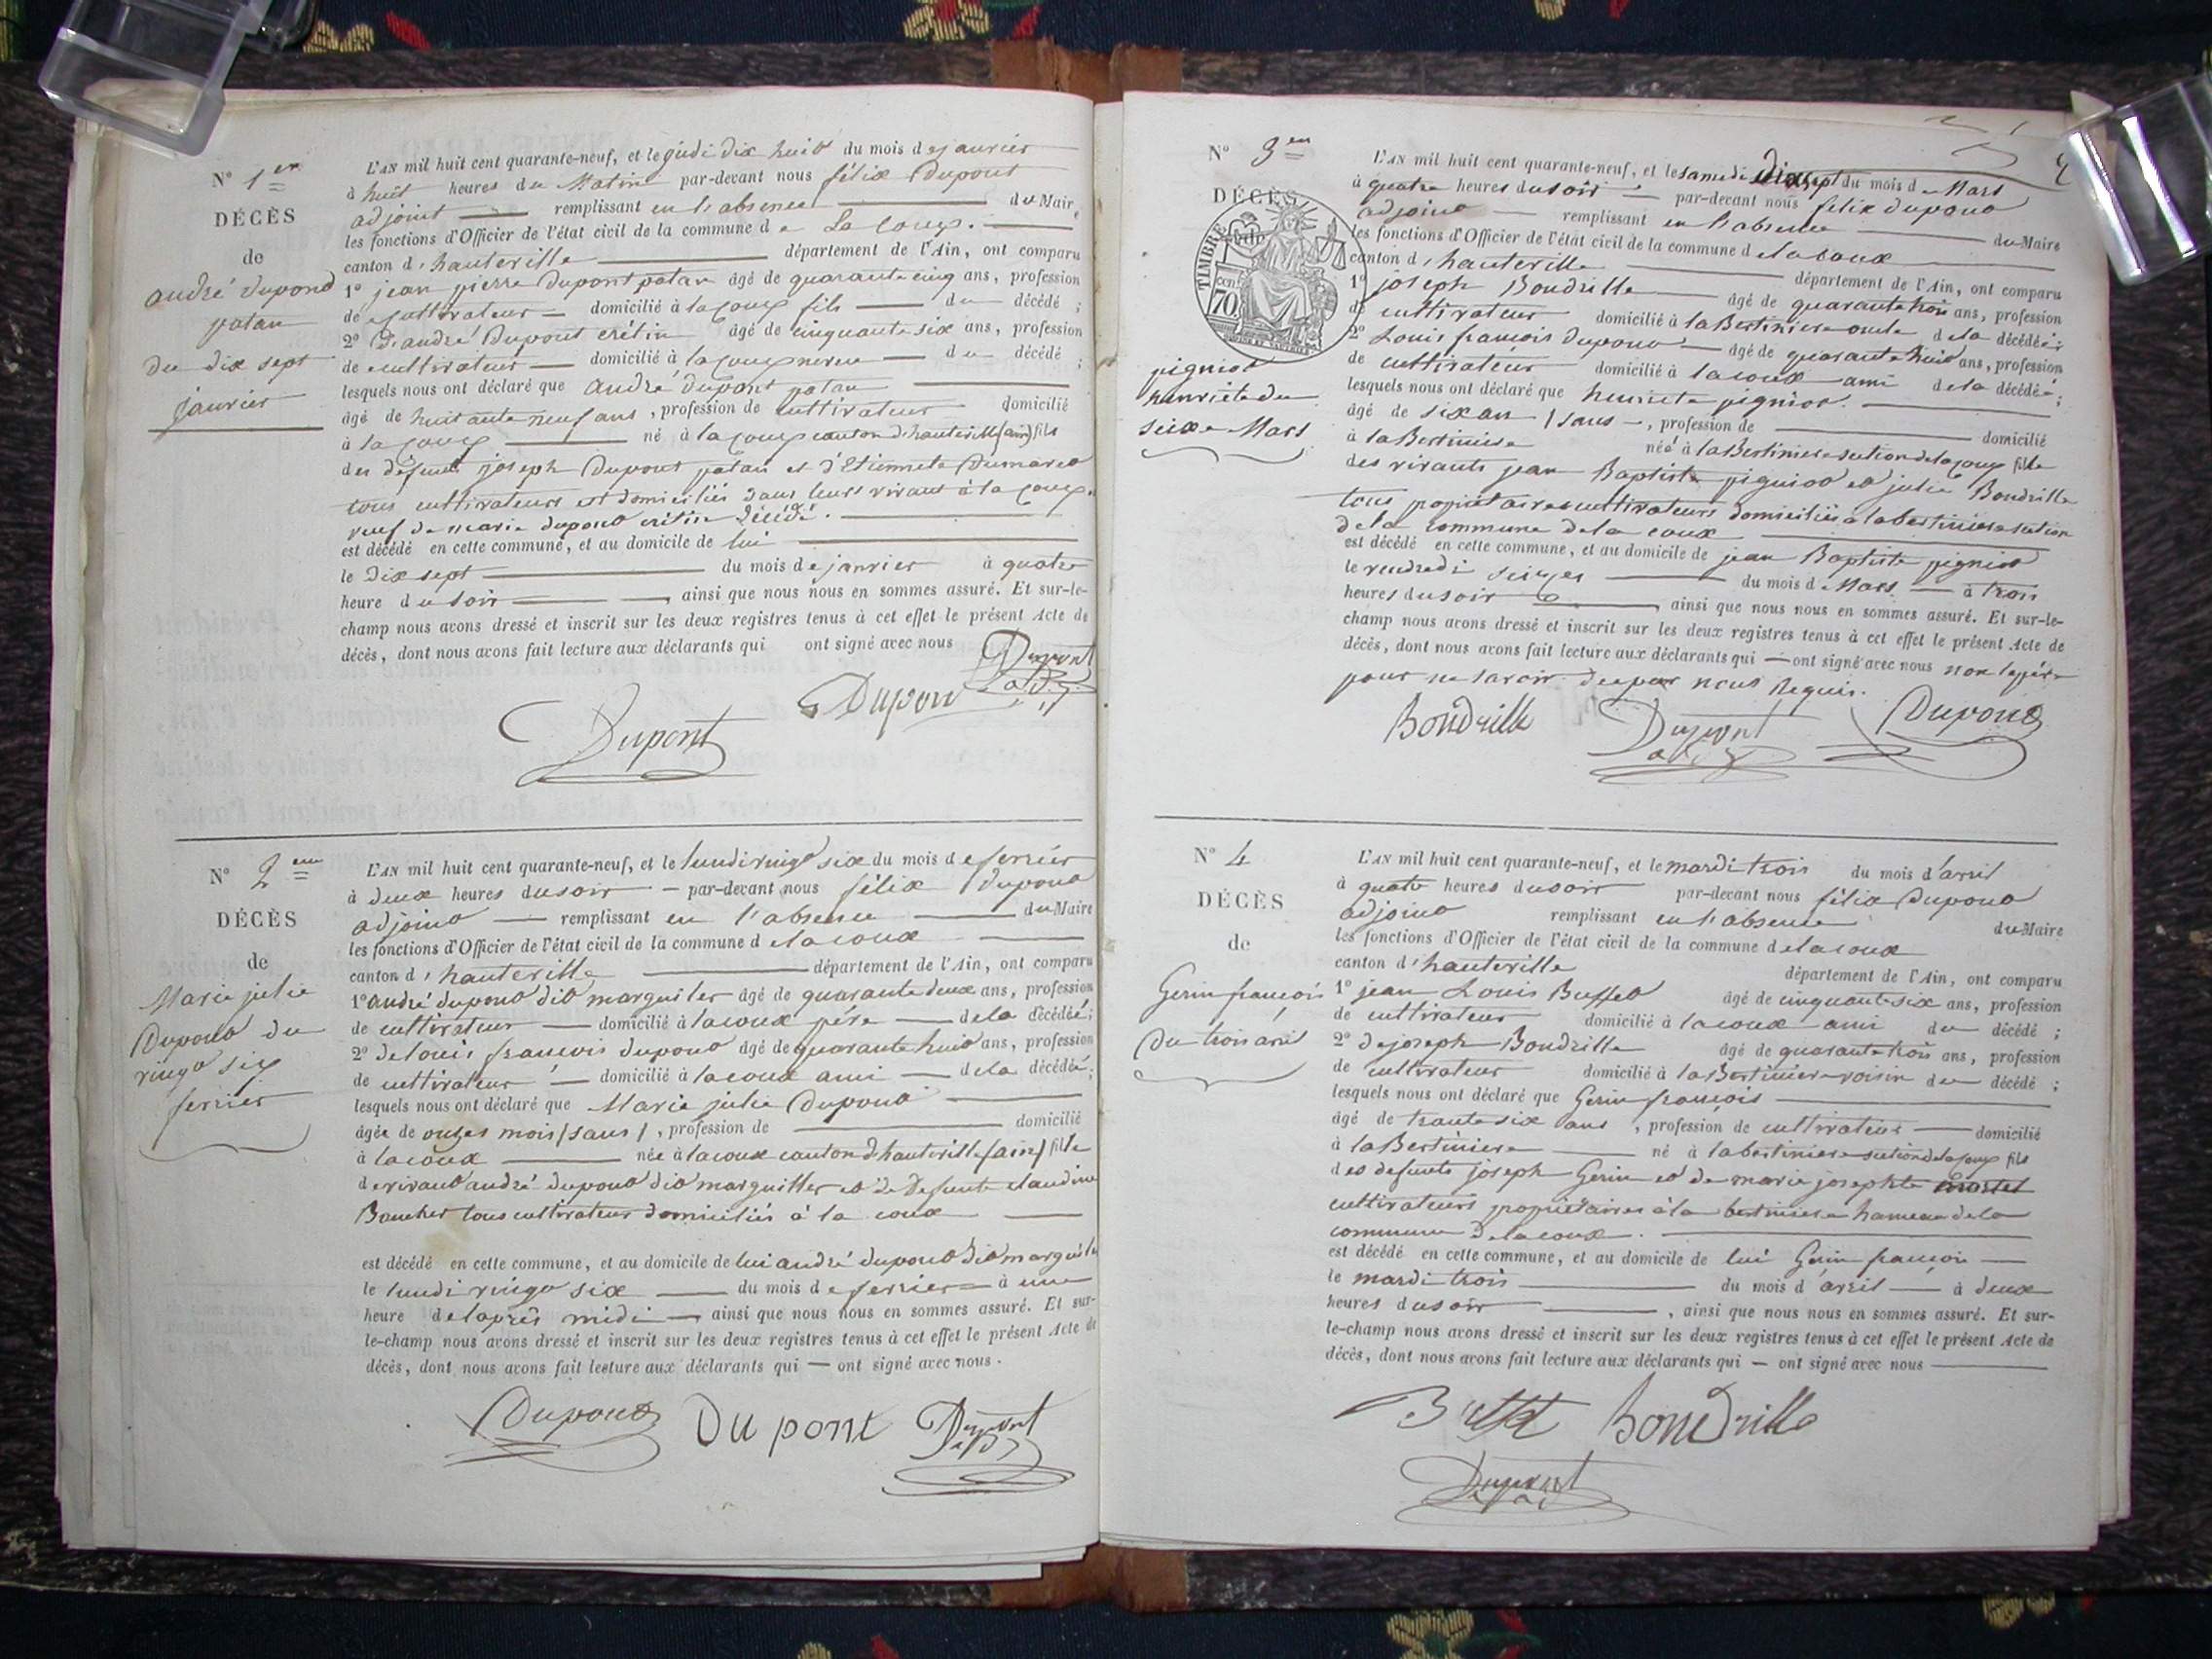 N° 1er
DÉCÈS
de
andré dupond
patan
du dix sept
janvier
L'AN mil huit cent quarante-neuf, et le jeudi dix huit du mois de janvier
à huit heures du Matin par-devant nous félix Dupont
adjoint remplissant en l'absence du Maire
les fonctions d'Officier de l'état civil de la commune de La Coux.
canton d'hauteville département de l'Ain, ont comparu
1° jean pierre Dupont patan âgé de quarante cinq ans, profession
de cultivateur domicilié à la Coux fils du décédé ;
2° D'andré Dupont crétin âgé de cinquante six ans, profession
de cultivateur domicilié à la Coux neveu du décédé ;
lesquels nous ont déclaré que andré dupont patan
âgé de huitante neuf ans, profession de cultivateur domicilié
à la Coux né à la Coux canton d'hauteville (ain) fils
des défunts joseph Dupont patan et d'Etiennete Dumarest
tous cultivateurs et domiciliés dans leurs vivant à la Coux.
veuf de marie dupond crétin décédé.
est décédé en cette commune, et au domicile de lui
le dix sept du mois de janvier à quatre
heure du soir ainsi que nous nous en sommes assuré. Et sur-le-
champ nous avons dressé et inscrit sur les deux registres tenus à cet effet le présent Acte de
décès, dont nous avons fait lecture aux déclarants qui ont signé avec nous
Dupont
Dupon
Dupont
N° 2eme
DÉCÈS
de
Marie julie
Dupond du
vingt six
fevrier
L'AN mil huit cent quarante-neuf, et le lundi vingt six du mois de fevrier
à deux heures du soir par-devant nous félix Dupond
adjoint remplissant en l'absence du Maire
les fonctions d'Officier de l'état civil de la commune de lacoux
canton d'hauteville département de l'Ain, ont comparu
1° andré dupond dit marguiller âgé de quarante deux ans, profession
de cultivateur domicilié à lacoux pére de la décédéé ;
2° de louis francois dupond âgé de quarante huit ans, profession
de cultivateur domicilié à lacoux ami de la décédéé ;
lesquels nous ont déclaré que Marie julie Dupond
âgée de onzes mois (sans), profession de domicilié
à lacoux née à lacoux canton d'hauteville (ain) fille
de vivant andré dupond dit marguiller et de Defunte claudine
Bauches tous cultivateur domiciliés à la coux
est décédé en cette commune, et au domicile de lui andré dupond dit marguiller
le lundi vingt six du mois de fevrier à une
heure de l'après midi ainsi que nous nous en sommes assuré. Et sur-
le-champ nous avons dressé et inscrit sur les deux registres tenus à cet effet le présent Acte de
décès, dont nous avons fait lecture aux déclarants qui ont signé avec nous.
Dupond Dupont Dupont
N° 3em
DÉCÈS
TIMBRE
70
pigniot
henriéte du
seize Mars
L'AN mil huit cent quarante-neuf, et le samedi Dix sept du mois de Mars
à quatre heures du soir par-devant nous félix dupond
adjoint remplissant en l'absence du Maire
les fonctions d'Officier de l'état civil de la commune de lacoux
canton d'hauteville département de l'Ain, ont comparu
1° joseph Bondrille âgé de quarante trois ans, profession
de cultivateur domicilié à la Bertiniere oncle de la décédéé ;
2° Louis francois dupond âgé de quarante huit ans, profession
de cultivateur domicilié à lacoux ami de la décédéé ;
lesquels nous ont déclaré que henriete pigniot.
âgé de six an (sans), profession de domicilié
à la Bertiniere néé à la Bertiniere section de la Coux fille
des vivants jean Baptiste pigniot et julie Bondrille
tous propriétaires cultivateurs domiciliés à la bertiniere section
de la commune de la coux
est décédé en cette commune, et au domicile de jean Baptiste pigniot
le vendredi seizes du mois de Mars à trois
heures du soir ainsi que nous nous en sommes assuré. Et sur-le-
champ nous avons dressé et inscrit sur les deux registres tenus à cet effet le présent Acte de
décès, dont nous avons fait lecture aux déclarants qui ont signé avec nous non le pére
pour ne savoir de par nous Requis.
Bondrille Dupont Dupond
N° 4
DÉCÈS
de
Gerin francois
Du trois avril
L'AN mil huit cent quarante-neuf, et le mardi trois du mois d'avril
à quatre heures du soir par-devant nous félix Dupond
adjoint remplissant en l'absence du Maire
les fonctions d'Officier de l'état civil de la commune de lacoux
canton d'hauteville département de l'Ain, ont comparu
1° jean Louis Buffet âgé de cinquante six ans, profession
de cultivateur domicilié à lacoux ami du décédé ;
2° de joseph Bondrille âgé de quarante trois ans, profession
de cultivateur domicilié à la Bertiniere voisin du décédé ;
lesquels nous ont déclaré que Gerin francois
âgé de trente six ans, profession de cultivateur domicilié
à la Bertiniere né à la bertiniere section de la Coux fils
des defunts joseph Gerin et de marie josephte martel
cultivateurs propriétaires à la bertiniere hameau de la
commune de lacoux.
est décédé en cette commune, et au domicile de lui Gerin francois
le mardi trois du mois d'avril à deux
heures du soir, ainsi que nous nous en sommes assuré. Et sur-
le-champ nous avons dressé et inscrit sur les deux registres tenus à cet effet le présent Acte de
décès, dont nous avons fait lecture aux déclarants qui ont signé avec nous
Buffet Bondrille
Dupont